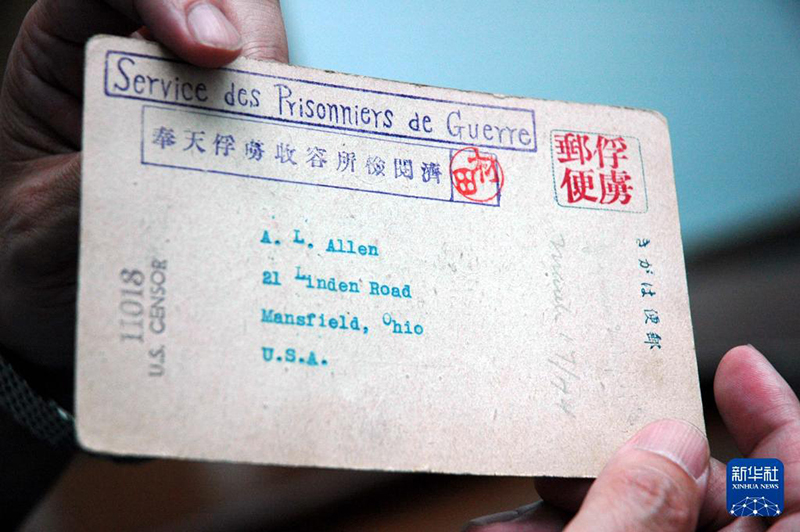 Service des Prisonniers de Guerre
奉天俘虜收容所檢閱濟
村田
俘虜
郵便
きがは便郵
A. L. Allen
21 Linden Road
Mansfield, Ohio
U.S.A.
11018
U.S. CENSOR
新华社
XINHUA NEWS